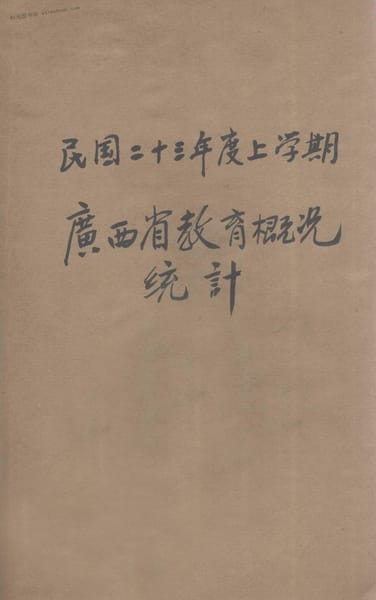 民国二十三年度上学期
廣西省教育概况
统計